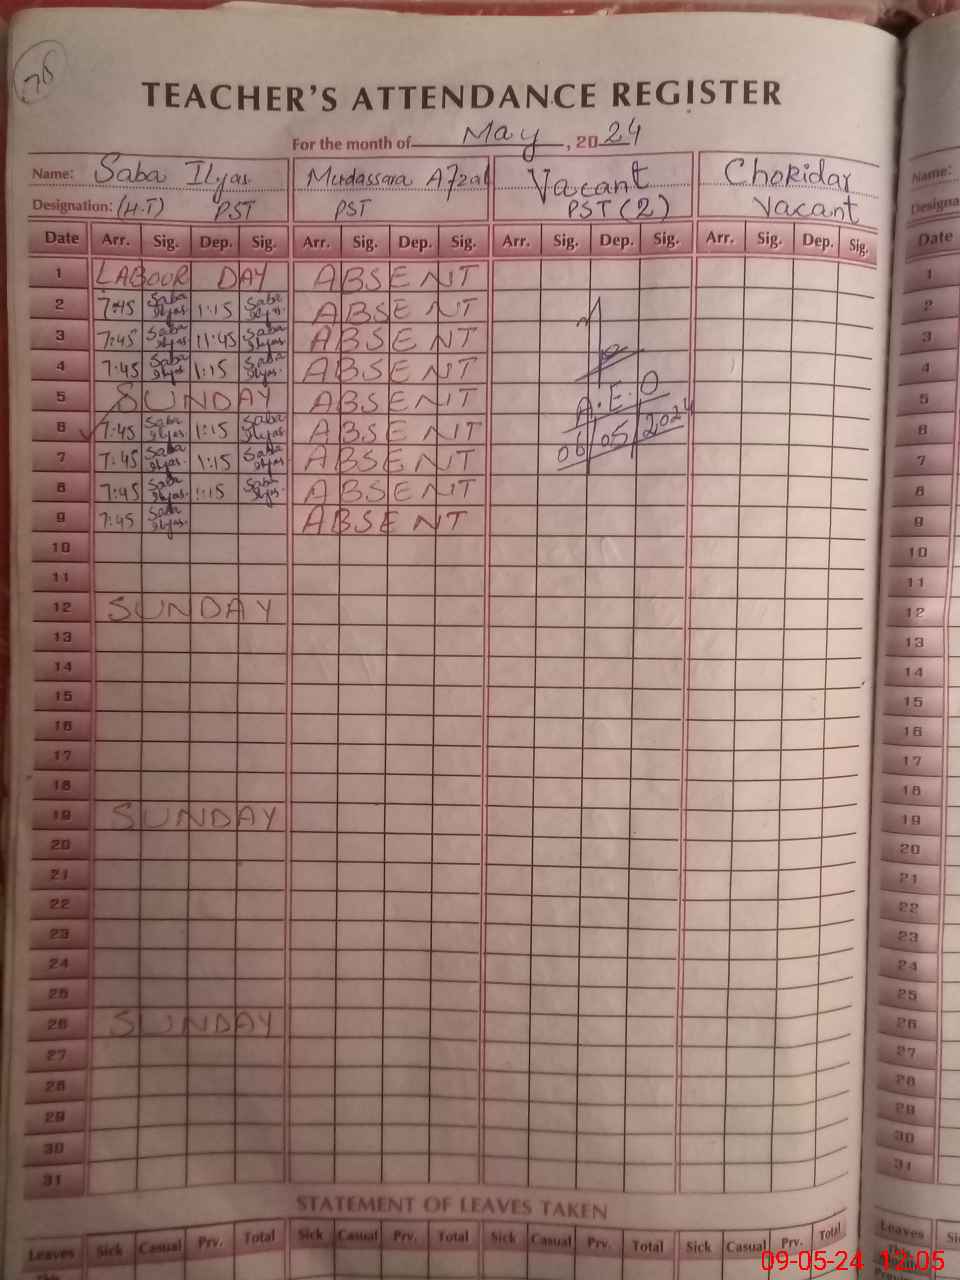 78
TEACHER'S ATTENDANCE REGISTER
For the month of May, 2024
Name: Saba Ilyas Mudassara Afzal Vacant Chokidar
Designation: (H.T) PST PST PST (2) Vacant
Date Arr. Sig. Dep. Sig. Arr. Sig. Dep. Sig. Arr. Sig. Dep. Sig. Arr. Sig. Dep. Sig.
1 LABOUR DAY ABSENT
2 7:45 Saba Ilyas. 1:15 Saba Ilyas. ABSENT
3 7:45 Saba Ilyas 11:45 Saba Ilyas. ABSENT
4 7:45 Saba Ilyas 1:15 Saba Ilyas. ABSENT
5 SUNDAY ABSENT A.E.O
6 7:45 Saba Ilyas. 1:15 Saba Ilyas. ABSENT 06/05/2024
7 7:45 Saba Ilyas. 1:15 Saba Ilyas. ABSENT
8 7:45 Saba Ilyas. 1:15 Saba Ilyas. ABSENT
9 7:45 Saba Ilyas. ABSENT
10
11
12 SUNDAY
13
14
15
16
17
18
19 SUNDAY
20
21
22
23
24
25
26 SUNDAY
27
28
29
30
31
STATEMENT OF LEAVES TAKEN
Leaves Sick Casual Prv. Total Sick Casual Prv. Total Sick Casual Prv. Total Sick Casual Prv. Total
Name:
Designa
Date
1
2
3
4
5
6
7
8
9
10
11
12
13
14
15
16
17
18
19
20
21
22
23
24
25
26
27
28
29
30
31
Leaves
09-05-24 12:05